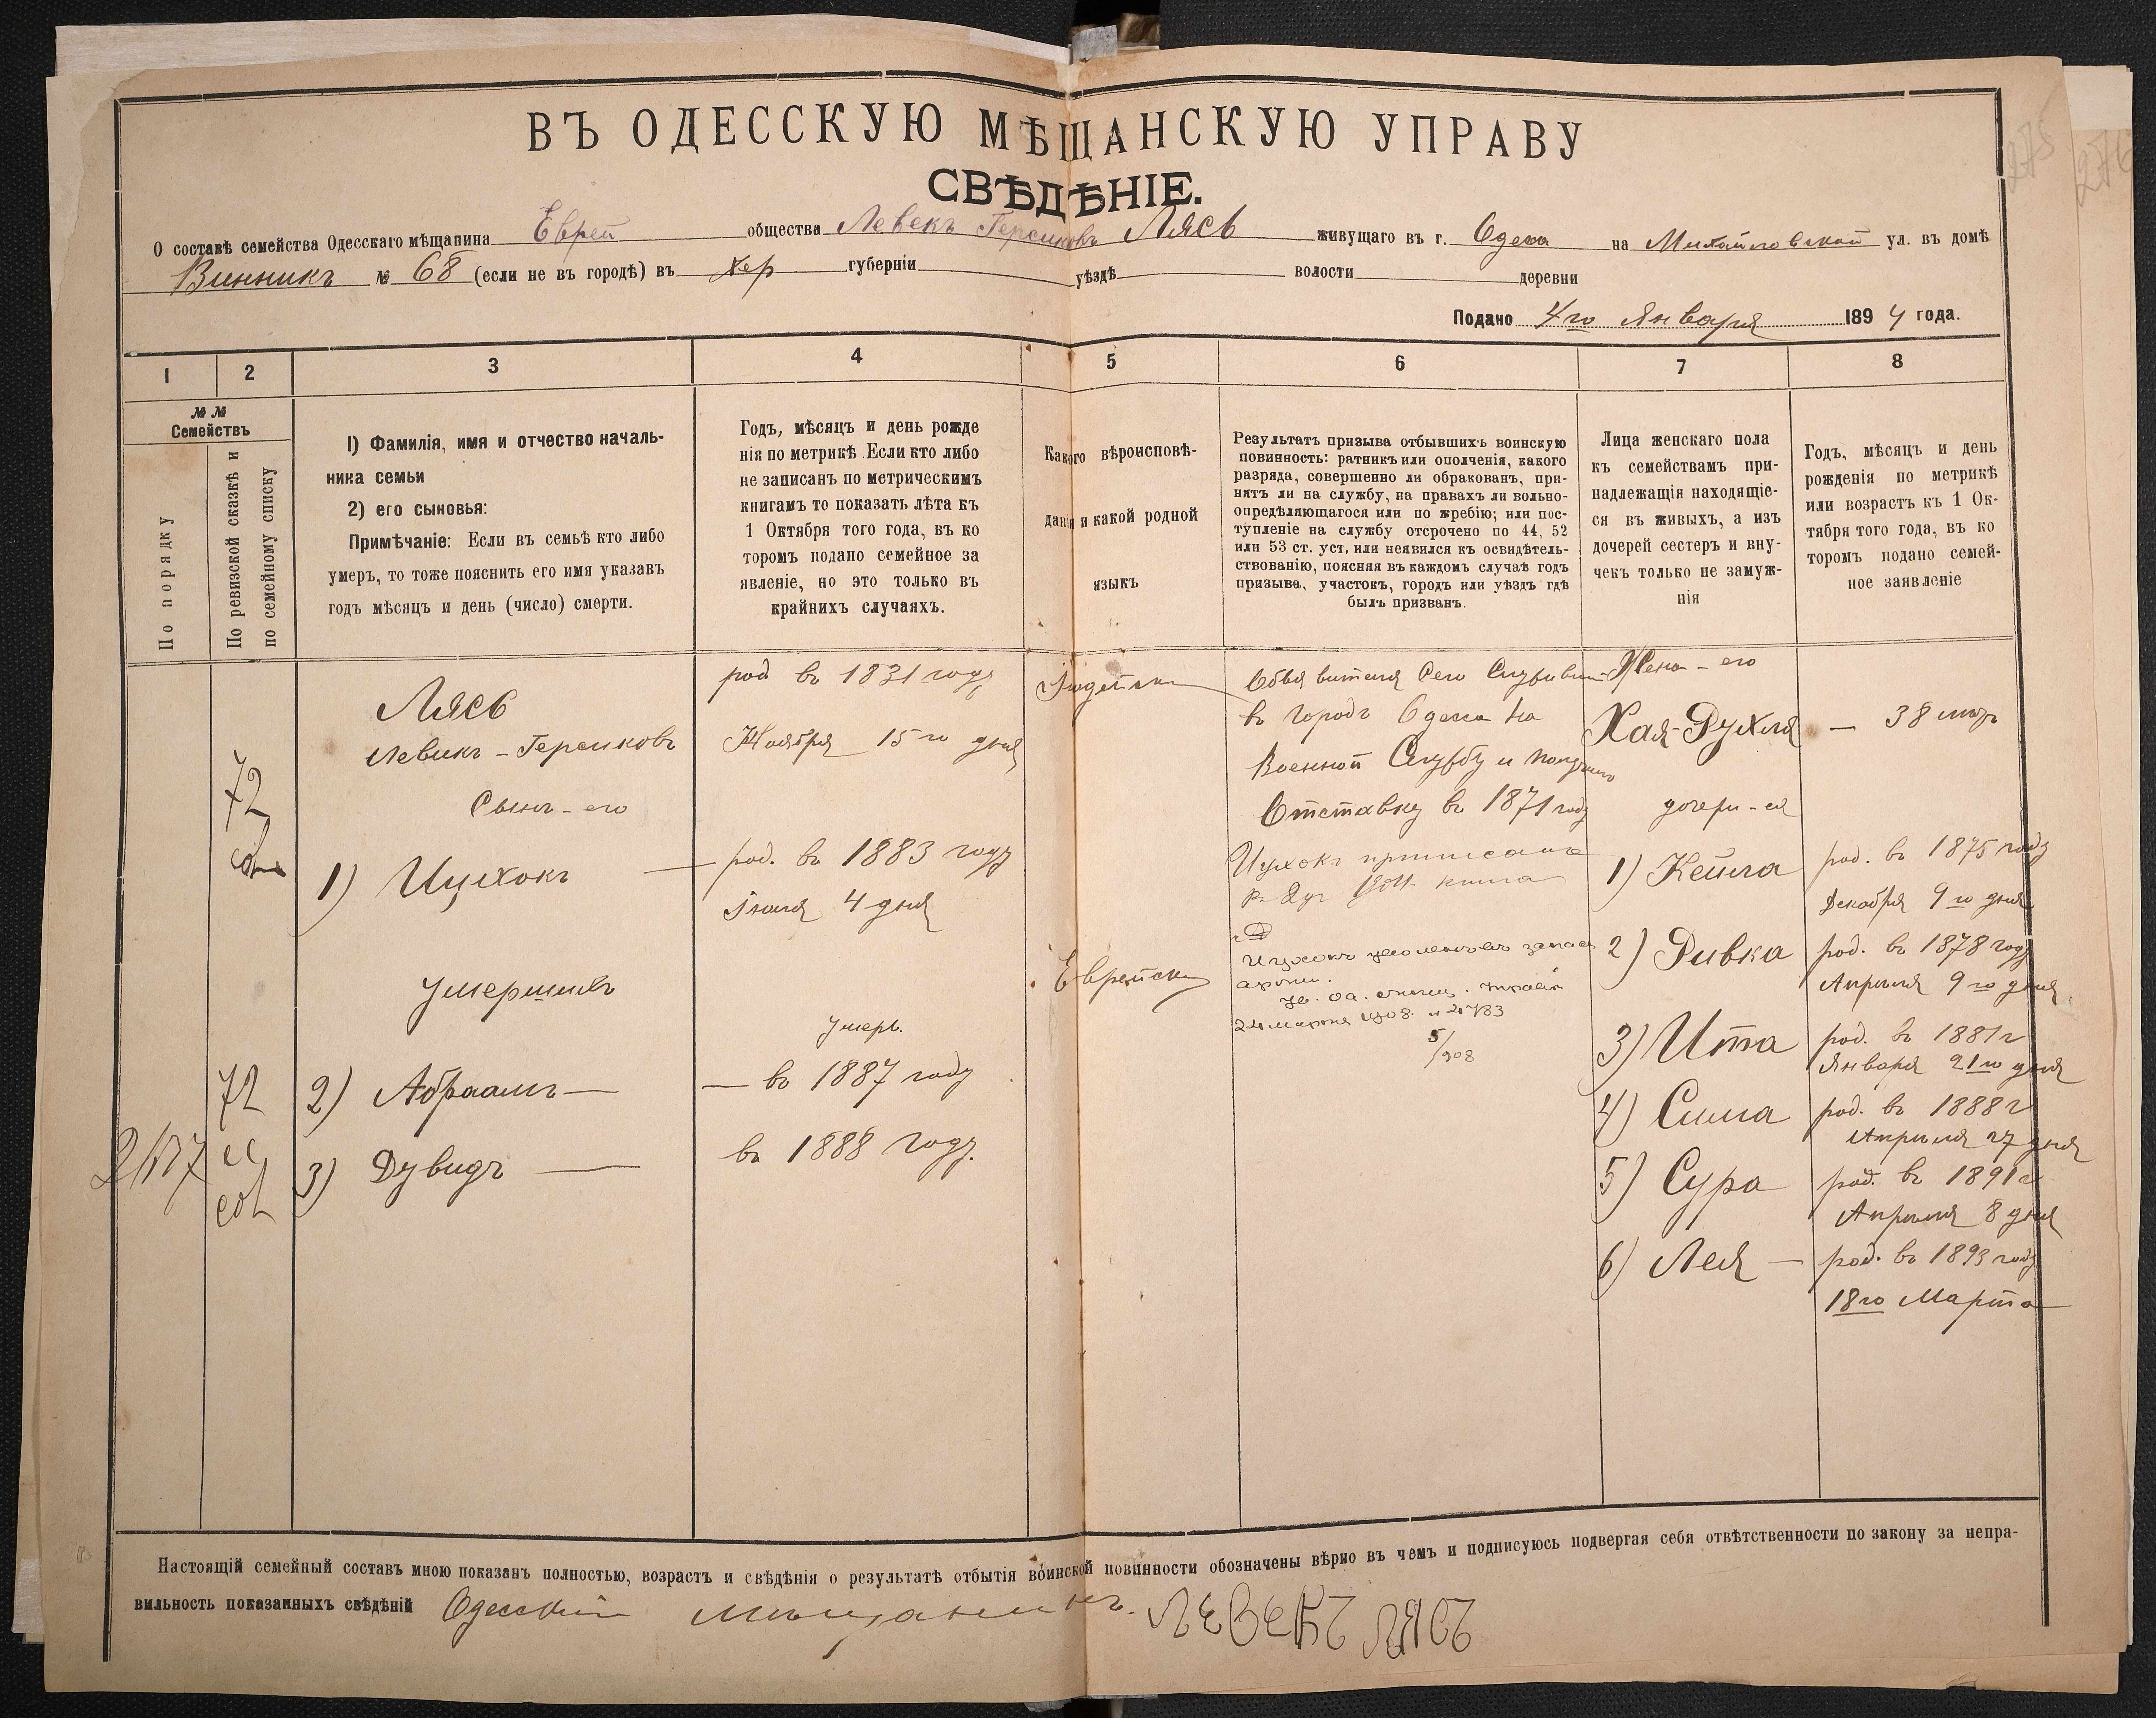 ВЪ ОДЕССКУЮ МѢЩАНСКУЮ УПРАВУ
СВѢДѢНІЕ.
О составѣ семейства Одесскаго мѣщанина Еврей общества Левекъ Герсиковъ Лясь живущаго въ г. Одеса на Михайловской ул. въ домѣ
Винникъ № 68 (если не въ городѣ) въ хер губерніи уѣздѣ волости деревни
Подано 4го Января 1894 года.
1 2 3 4 5 6 7 8
№ №
Семействъ
По порядку
По ревизской сказкѣ и
по семейному списку
1) Фамилія, имя и отчество началь-
ника семьи
2) его сыновья:
Примѣчаніе: Если въ семьѣ кто либо
умеръ, то тоже пояснить его имя указавъ
годъ мѣсяцъ и день (число) смерти.
Годъ, мѣсяцъ и день рожде
нія по метрикѣ. Если кто либо
не записанъ по метрическимъ
книгамъ то показать лѣта къ
1 Октября того года, въ ко
торомъ подано семейное за
явленіе, но это только въ
крайнихъ случаяхъ.
Какого вѣроисповѣ-
данія и какой родной
языкъ
Результатъ призыва отбывшихъ воинскую
повинность: ратникъ или ополченія, какого
разряда, совершенно ли обракованъ, при-
нятъ ли на службу, на правахъ ли вольно-
опредѣляющагося или по жребію; или пос-
тупленіе на службу отсрочено по 44, 52
или 53 ст. уст. или неявился къ освидѣтель-
ствованію, поясняя въ каждомъ случаѣ годъ
призыва, участокъ, городъ или уѣздъ гдѣ
былъ призванъ.
Лица женскаго пола
къ семействамъ при-
надлежащія находящіе-
ся въ живыхъ, а изъ
дочерей сестеръ и вну-
чекъ только не замуж-
нія
Годъ, мѣсяцъ и день
рожденія по метрикѣ
или возрастъ къ 1 Ок-
тября того года, въ ко
торомъ подано семей-
ное заявленіе
72
Лясь
Левикъ-Герсиковъ
Сынъ-его
1) Ицхокъ
умершивъ
72
2) Абраамъ
3) Дувидъ
род въ 1831 году
Ноября 15го дня
род. въ 1883 году
Іюля 4 дня
умеръ.
въ 1887 году
въ 1888 году.
Іюдейски
Еврейски
въ городъ Одеса на
Военной Службу и
Отставку въ 1871 году
Ицхокъ приписанъ
22 марта 1908
5/908
Жена-его
Хая-Рухля — 38 лѣтъ
дочери-ея
1) Кейла род. въ 1875 году
Декабря 9го дня
2) Ривка род. въ 1878 году
Апрыля 9го дня
3) Ита род. въ 1881 г
Января 21го дня
4) Сима род. въ 1888 г
Апрыля 27 дня
5) Сура род. въ 1891 г
Апрыля 8 дня
6) Лея — род. въ 1893 году
18го Марта
Настоящій семейный составъ мною показанъ полностью, возрастъ и свѣдѣнія о результатѣ отбытія воинской повинности обозначены вѣрно въ чемъ и подписуюсь подвергая себя отвѣтственности по закону за непра-
вильность показанныхъ свѣдѣній Одесскій мѣщанинъ.
275
276